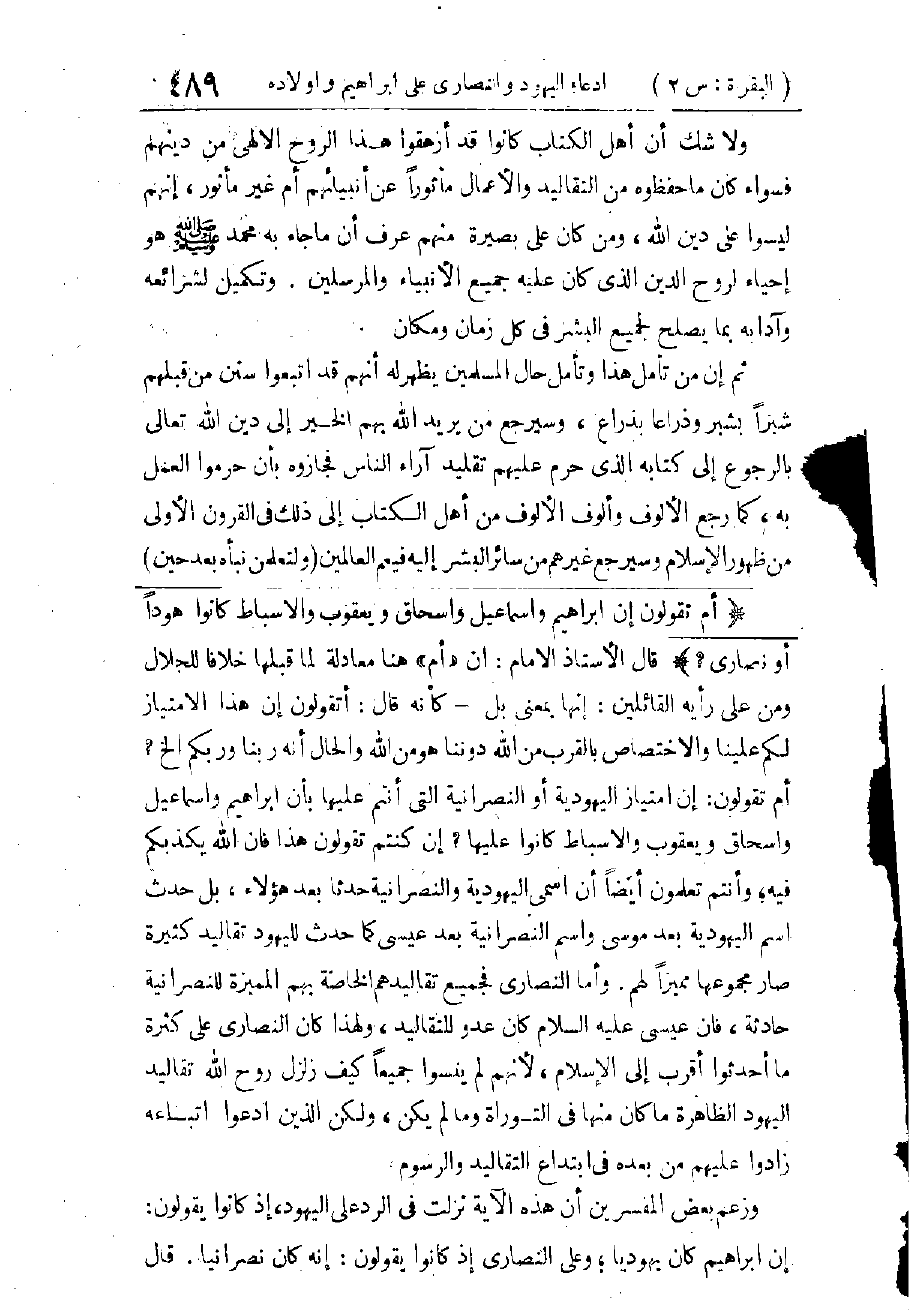 ( البقرة : س ٢ ) ادعاء اليهود والنصارى على ابراهيم واولاده ٤٨٩
ولا شك أن أهل الكتاب كانوا قد أزهقوا هـذا الروح الالهى من دينهم
فسواء كان ماحفظوه من التقاليد والأعمال مأثوراً عن أنبيائهم أم غير مأثور ، إنهم
ليسوا على دين الله ، ومن كان على بصيرة منهم عرف أن ماجاء به محمد ﷺ هو
إحياء لروح الدين الذى كان عليه جميع الأنبياء والمرسلين . وتكميل لشرائعه
وآدابه بما يصلح لجميع البشر فى كل زمان ومكان
ثم إن من تأمل هذا وتأمل حال المسلمين يظهر له أنهم قد اتبعوا سنن من قبلهم
شبراً بشبر وذراعا بذراع ، وسيرجع من يريد الله بهم الخير إلى دين الله تعالى
بالرجوع إلى كتابه الذى حرم عليهم تقليد آراء الناس فجازوه بأن حرموا العمل
به ، كما رجع الألوف وألوف الألوف من أهل الكتاب إلى ذلك فى القرون الأولى
من ظهور الإسلام وسيرجع غيرهم من سائر البشر إليه فيعم العالمين (ولتعلمن نبأه بعد حين)
﴿ أم تقولون إن ابراهيم واسماعيل واسحاق ويعقوب والاسباط كانوا هوداً
أو نصارى ؟ ﴾ قال الأستاذ الامام : ان «أم» هنا معادلة لما قبلها خلافا للجلال
ومن على رأيه القائلين : إنها بمعنى بل – كأنه قال : أتقولون إن هذا الامتياز
لكم علينا والاختصاص بالقرب من الله دوننا هو من الله والحال أنه ربنا وربكم الخ ؟
أم تقولون: إن امتياز اليهودية أو النصرانية التى أنتم عليها بأن ابراهيم واسماعيل
واسحاق ويعقوب والاسباط كانوا عليها ؟ إن كنتم تقولون هذا فان الله يكذبكم
فيه، وأنتم تعلمون أيضاً أن اسمى اليهودية والنصرانية حدثا بعد هؤلاء ، بل حدث
اسم اليهودية بعد موسى واسم النصرانية بعد عيسى كما حدث لليهود تقاليد كثيرة
صار مجموعها مميزاً لهم . وأما النصارى فجميع تقاليدهم الخاصة بهم المميزة للنصرانية
حادثة ، فان عيسى عليه السلام كان عدو للتقاليد ، ولهذا كان النصارى على كثرة
ما أحدثوا أقرب إلى الإسلام ، لأنهم لم ينسوا جميعاً كيف زلزل روح الله تقاليد
اليهود الظاهرة ما كان منها فى التـوراة وما لم يكن ، ولكن الذين ادعوا اتبـاعه
زادوا عليهم من بعده فى ابتداع التقاليد والرسوم
وزعم بعض المفسرين أن هذه الآية نزلت فى الرد على اليهود، إذ كانوا يقولون:
إن ابراهيم كان يهوديا ، وعلى النصارى إذ كانوا يقولون : إنه كان نصرانيا . قال